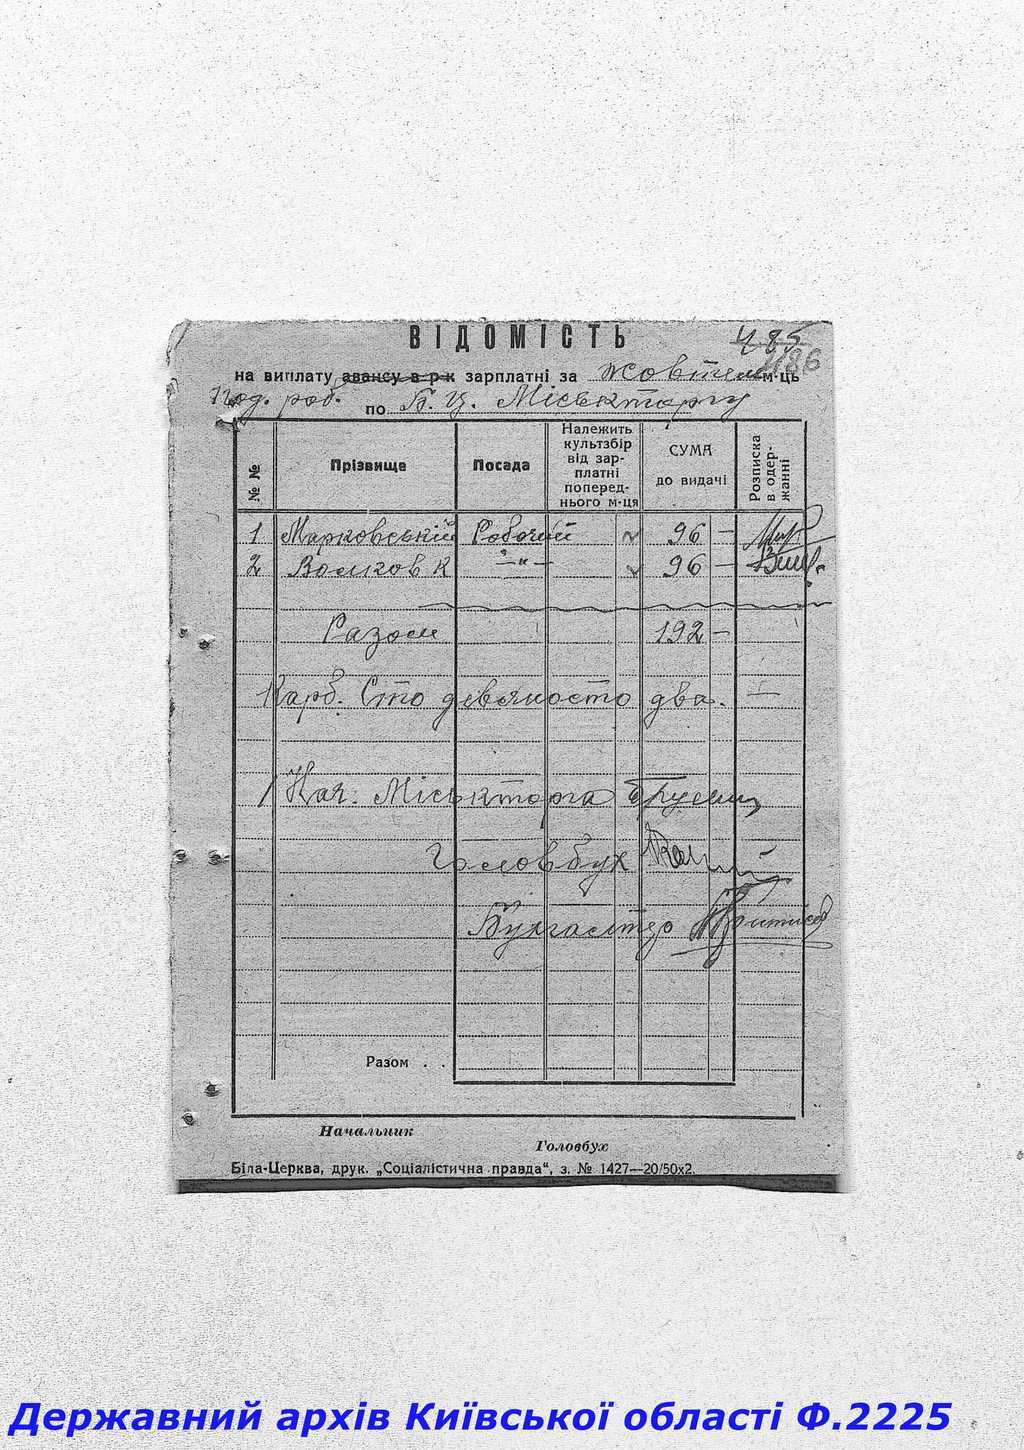 ВІДОМІСТЬ
485
186
на виплату авансу в р-к зарплатні за Жовтень м-ць
Под. роб. по Б. Ц. Міськторгу
№ № Прізвище Посада Належить культзбір від зарплатні попереднього м-ця СУМА до видачі Розписка в одержанні
1 Марковський Робочий 96 —
2 Волков К —"— 96 —
Разом 192 —
Карб. Сто девяносто два. —
Нач. Міськторга
Головбух
Бухгалтер
Разом . .
Начальник
Головбух
Біла-Церква, друк. „Соціалістична правда“, з. № 1427—20/50х2.
Державний архів Київської області Ф.2225